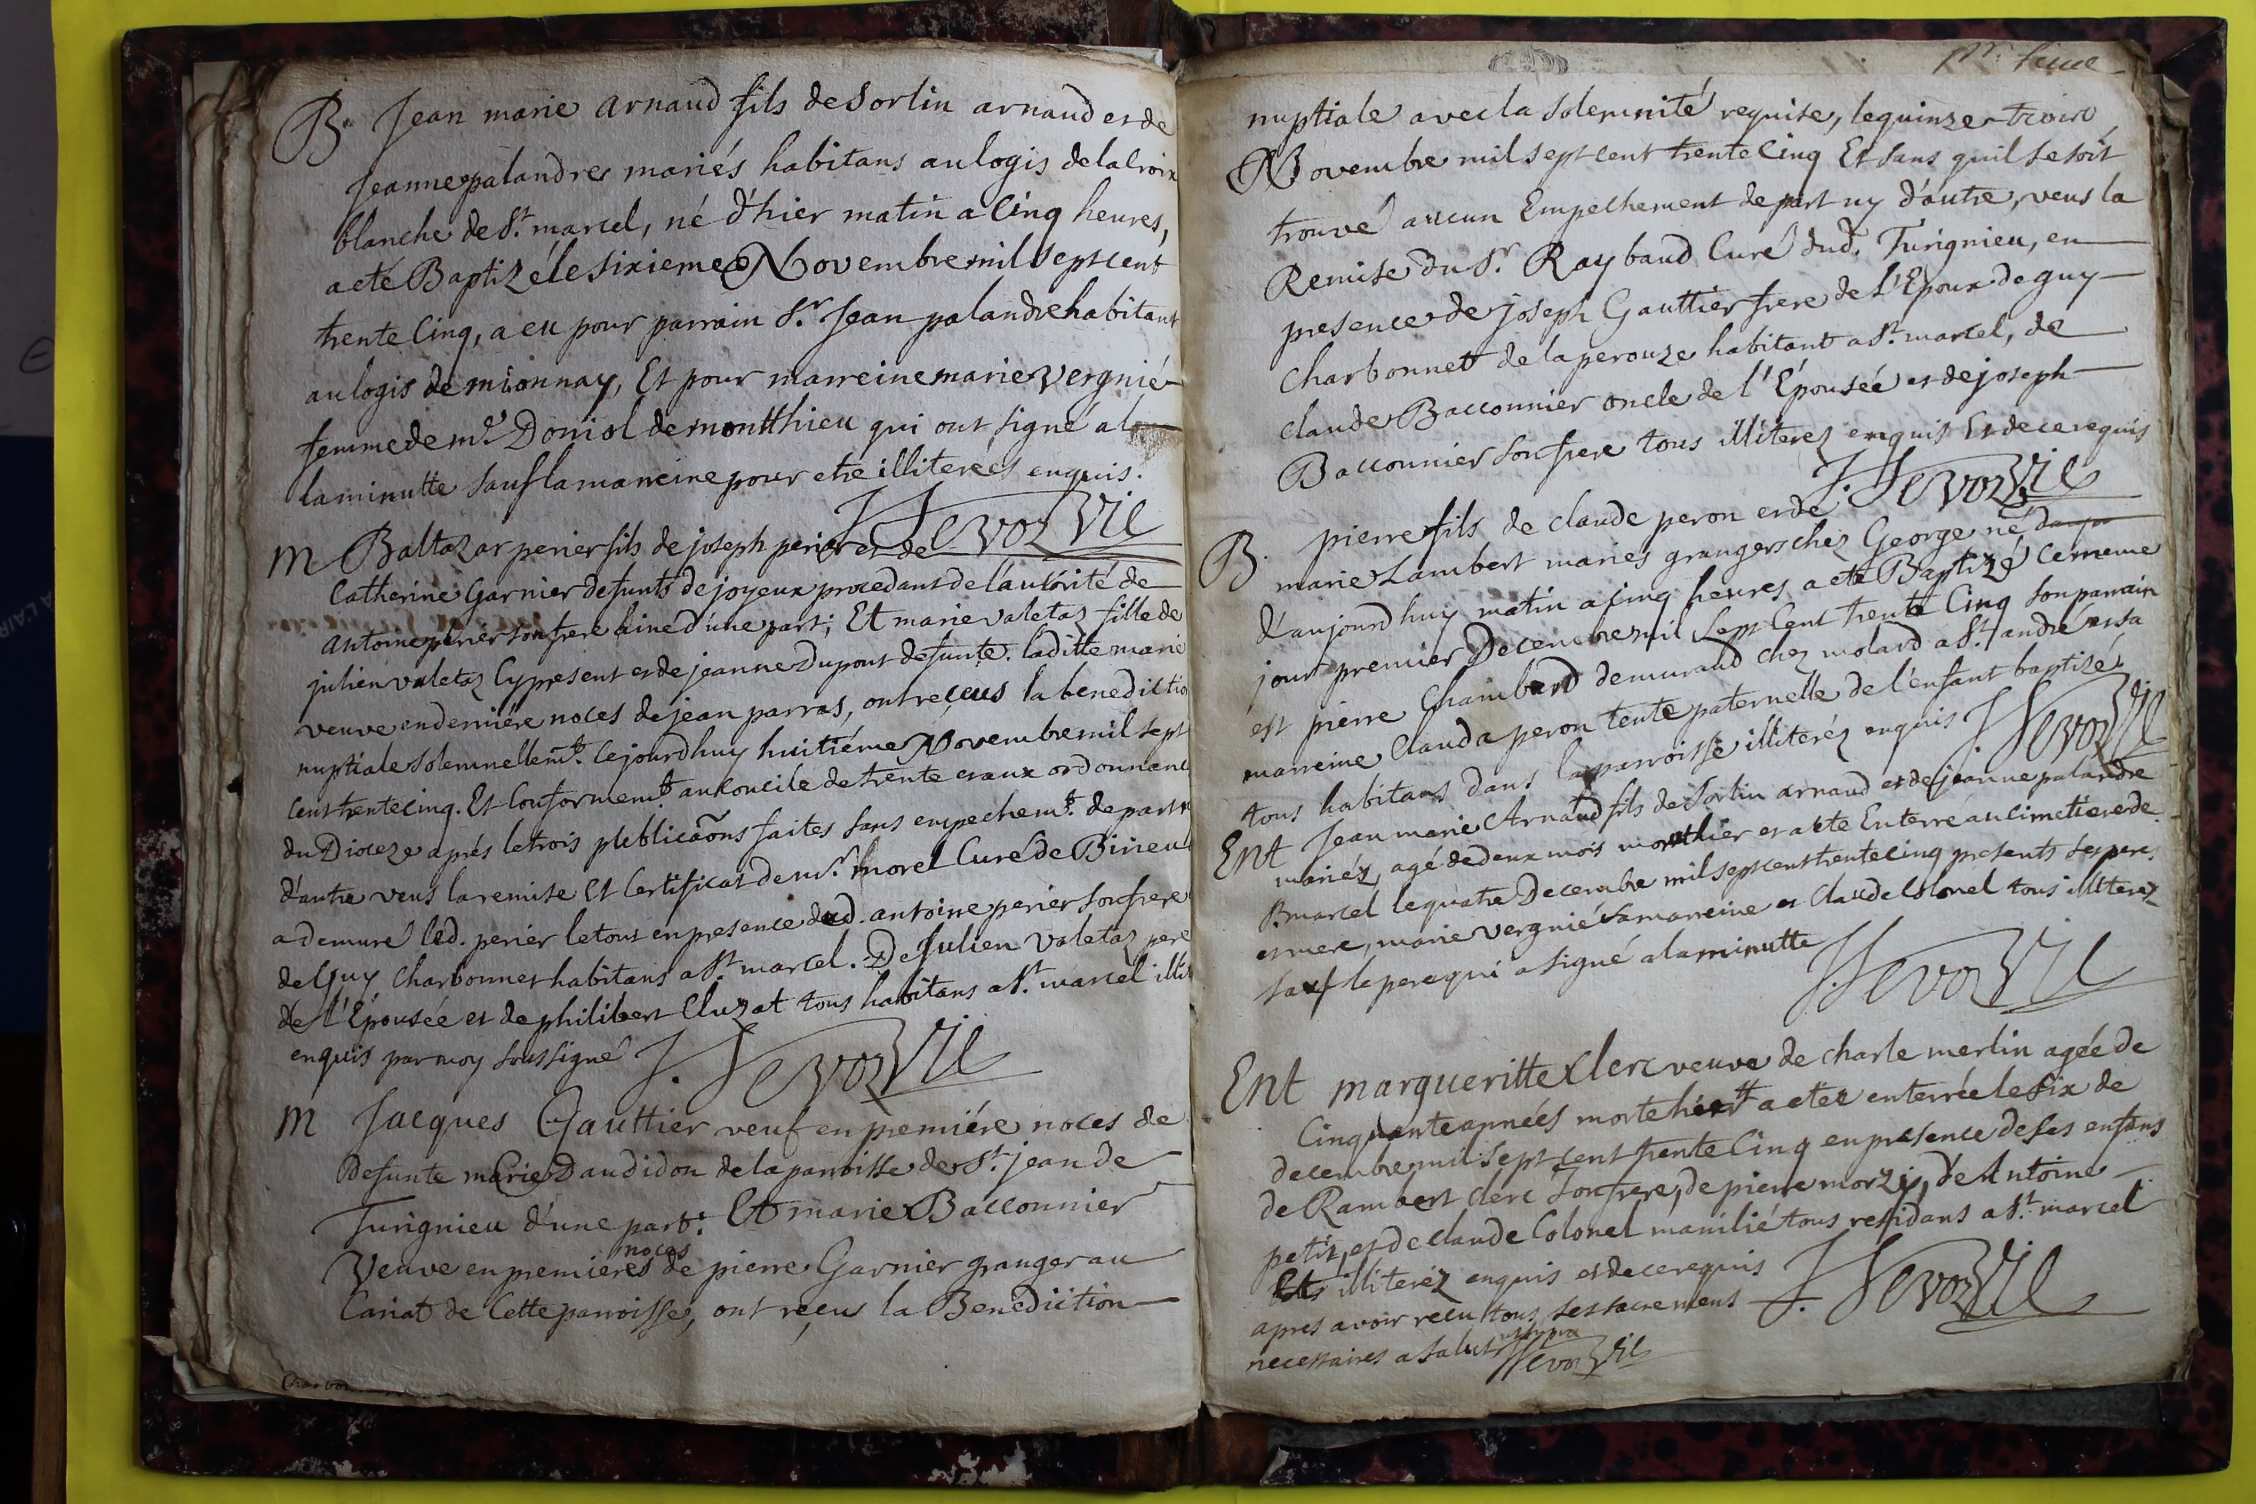 B Jean marie arnaud fils de Sorlin arnaud et de
Jeanne palandre mariés habitans au logis de la Croix
blanche de St. marcel, né d'hier matin a Cinq heures,
a eté Baptizé le sixieme Novembre mil sept cent
trente Cinq, a eu pour parrain Sr. Jean palandre habitant
au logis de mionnay, Et pour marreine marie vergnié
femme de me Doniol de montthieu qui ont signé a
la minutte sauf la mareine pour etre illiterées enquis.
J. Sevoz Vic
M Baltazar perier fils de joseph perier et de
Catherine Garnier defunts de joyeux procedant de l'autorité de
antoine perier son frere ainé d'une part; Et marie valetaz fille de
julien valetaz Cy present et de jeanne Dupont defunte. laditte marie
veuve en derniére noces de jean parras, ont reçeus la benediction
nuptiale solemnellemt. Cejourd'huy huitiéme Novembre mil sept
cent trente cinq. Et Conformemt. au Concile de trente et aux ordonnance
du Dioceze aprés le trois publicaõns faites sans empechemt. de part n
d'autre veus la remise et Certificat de mr. morel Curé de Birieu
a demuré led. perier le tout en presence dud. antoine perier son frere
de Guy Charbonnet habitans a St. marcel. De Julien Valetaz pere
de l'Epousée et de philibert Cluzat tous habitans a St. marcel illit
enquis par moy soussigné J. Sevoz Vic
M Jacques Gauttier veuf en premiére noces de
Defunte marie Dandidon de la parroisse de St. jean de
Turignieu d'une part. Et marie Bacconnier
Veuve en premieres noces de pierre Garnier granger au
Cariat de Cette parroisse, ont reçus la Benediction
nuptiale avec la solemnité requise, le quinze
Novembre mil sept cent trente Cinq Et sans quil se soit
trouvé aucun Empechement de part ny d'autre, veus la
Remise du Sr. Raybaud Curé dud. Turignieu, en
presence de joseph Gauttier frere de l'Epoux de guy
Charbonnet de la perouze habitant a St. marcel, de
claude Bacconnier oncle de l'Épousée et de joseph
Bacconnier son frere tous illiterez enquis Et de ce requis
J. Sevoz Vic
B. pierre fils de claude peron et de
marie Lambert mariés grangers chez George né
d'aujourd'huy matin a cinq heures a eté Baptizé Ce meme
jour premier Decembre mil Sept Cent trente Cinq son parrain
est pierre Chambard demurand chez molard a St. andré et sa
marreine Clauda peron tente paternelle de l'enfant baptisé
tous habitans dans la parroisse illiteréz enquis J. Sevoz Vic
Ent Jean marie Arnaud fils de Sorlin arnaud et de jeanne palandre
mariéz, agé de deux mois mort hier et a eté Enterré au Cimetiere de
St. marcel le quatre Decembre mil sept cent trente cinq presents ses pere
et mere, marie vergnié sa marreine et Claude Colonel tous illiterez
sauf le pere qui a signé a la minutte
J. Sevoz Vic
Ent margueritte Clerc veuve de charle merlin agée de
Cinquante années morte hier a eté enterrée le six de
decembre mil sept cent trente Cinq en presence de ses enfans
de Rambert clerc son frere, de pierre, d'Antoine
petit, et de claude Colonel manilié tous residans a St. marcel
illiteréz enquis et de ce requis J. Sevoz Vic
apres avoir recu tous ses sacremens
necessaires a salut Sevoz Vic